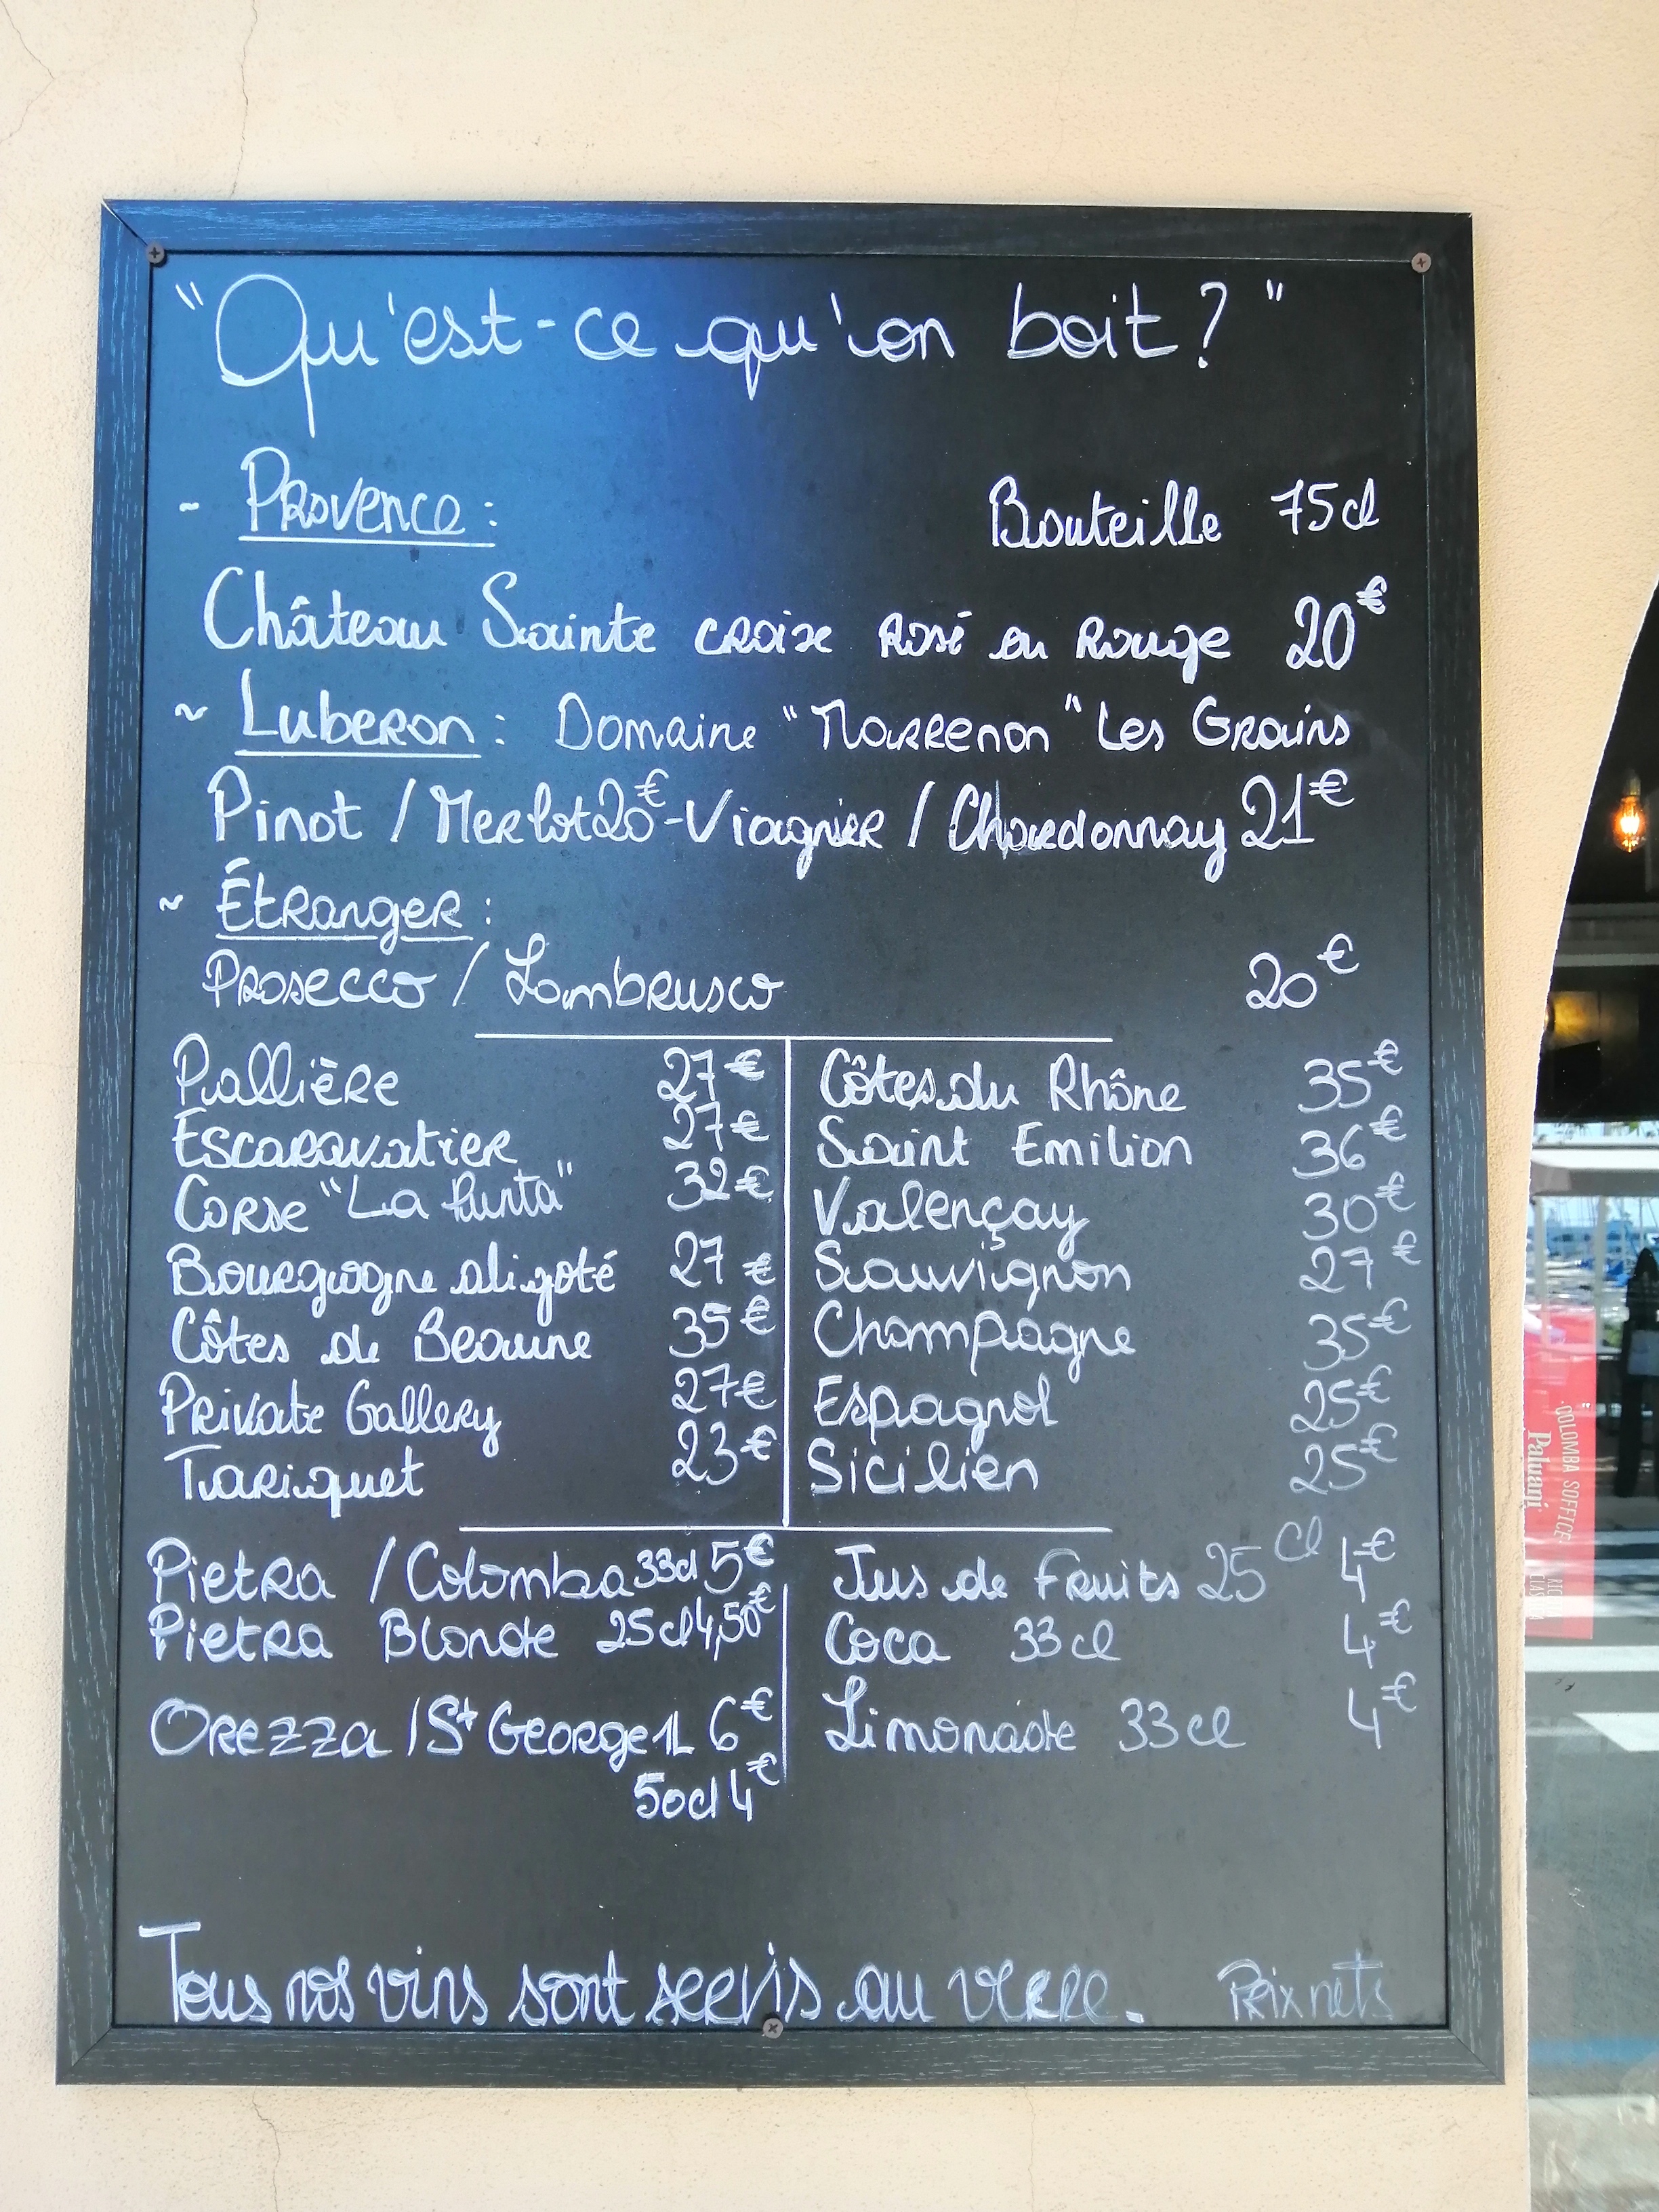 "Qu'est-ce qu'on boit ? "
- Provence : Bouteille 75cl
Château Sainte croixe Rosé ou Rouge 20€
~ Luberon : Domaine "Marrenon" Les Grains
Pinot / Merlot 20€ - Viognier / Chardonnay 21€
~ Étranger :
Prosecco / Lambrusco 20€
Pallière 27€
Escaravatier 27€
Corse "La Punta" 32€
Bourgogne aligoté 27€
Côtes de Beaune 35€
Private Gallery 27€
Tariquet 23€
Côtes du Rhône 35€
Saint Emilion 36€
Valençay 30€
Sauvignon 27€
Champagne 35€
Espagnol 25€
Sicilien 25€
Pietra / Colomba 33cl 5€
Pietra Blonde 25cl 4,50€
Orezza / St George 1L 6€
50cl 4€
Jus de Fruits 25 cl 4€
Coca 33cl 4€
Limonade 33cl 4€
Tous nos vins sont servis au verre. Prix nets
COLOMBA SOFFICE
Paluani